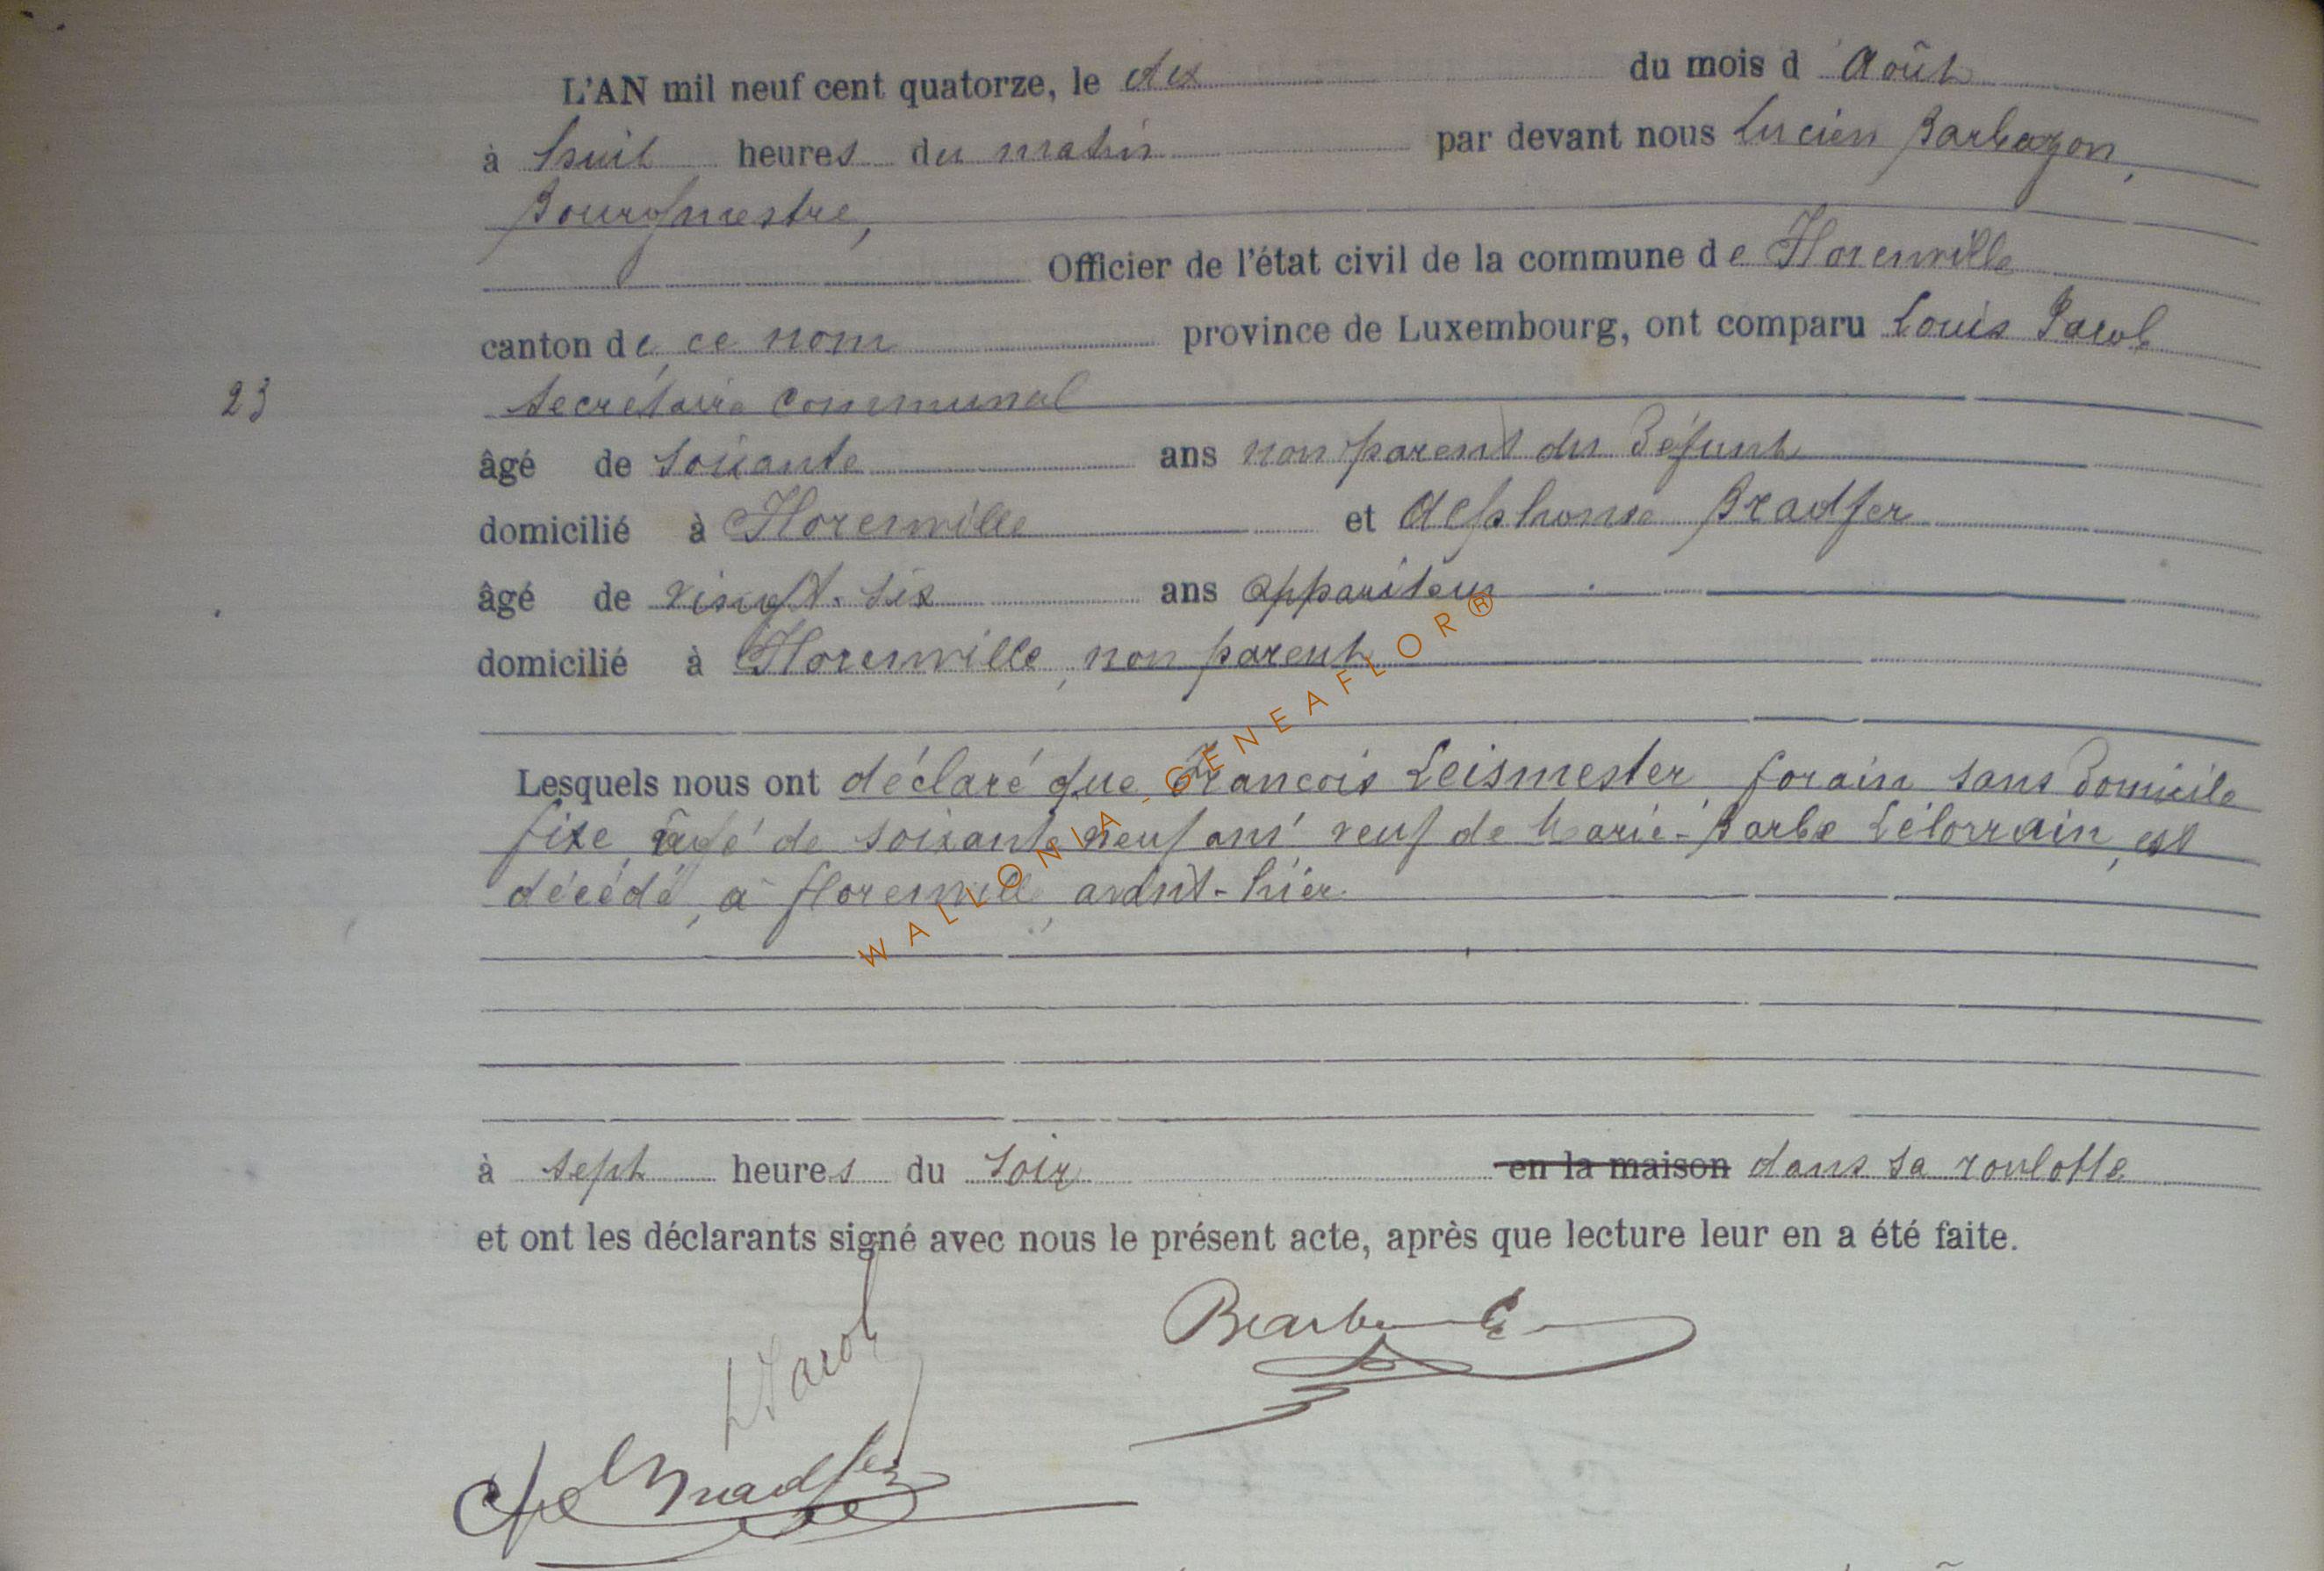 L'AN mil neuf cent quatorze, le dix du mois d'Août
à huit heures du matin par devant nous Lucien Barbazon,
Bourgmestre,
Officier de l'état civil de la commune de Florenville
canton de ce nom province de Luxembourg, ont comparu Louis Jacob
secrétaire communal
23
âgé de soixante ans non parent du défunt
domicilié à Florenville et Alphonse Bradfer
âgé de vingt-six ans appariteur
domicilié à Florenville, non parent
Lesquels nous ont déclaré que François Leismester forain sans domicile
fixe, âgé de soixante neuf ans veuf de Marie-Barbe Lélorrain, est
décédé, à Florenville, avant-hier
WALLONIA-GENEAFLOR®
à sept heures du soir en la maison dans sa roulotte
et ont les déclarants signé avec nous le présent acte, après que lecture leur en a été faite.
L Jacob
Bradfer